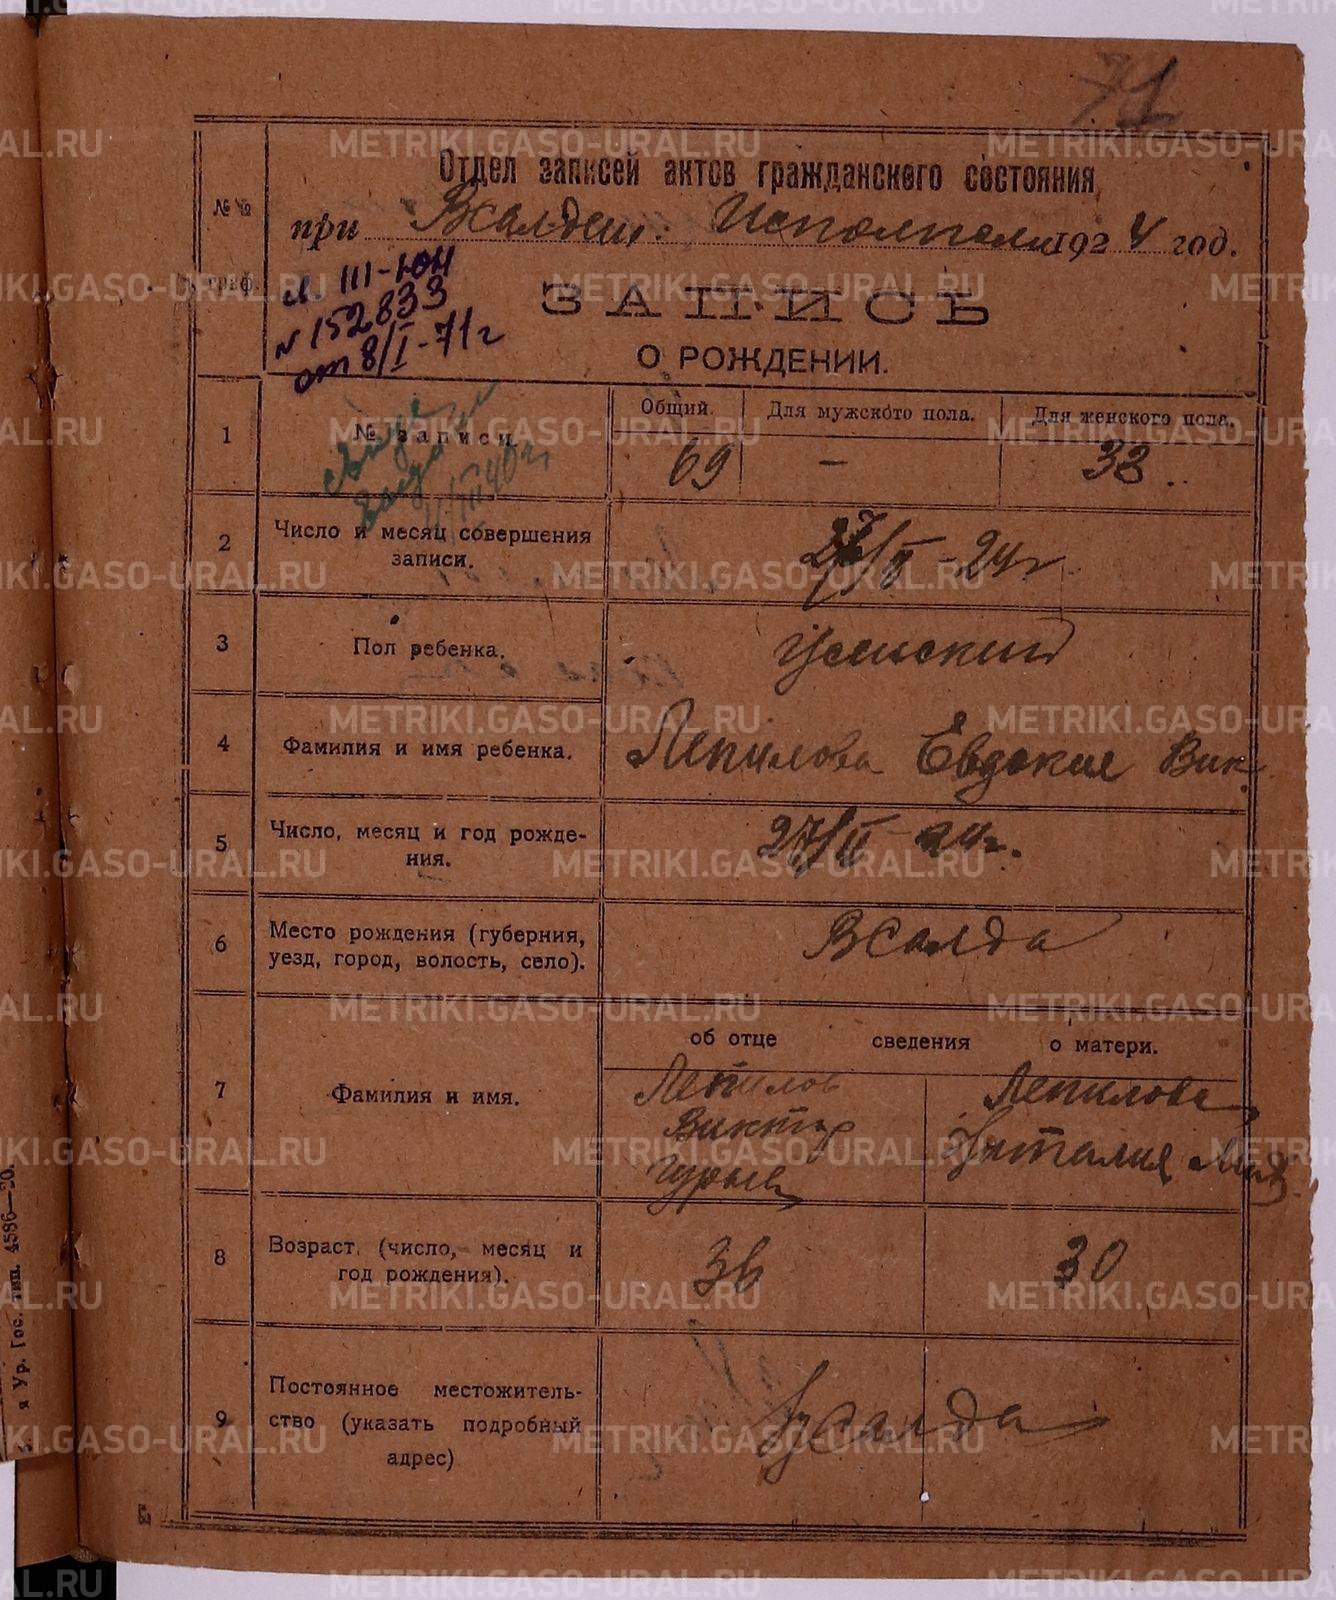 71
Отдел записей актов гражданского состояния
при ВСалдин. Исполкоме 1924 год.
№№ граф.
св. III-ЮН
№152833
от 8/I-71г
ЗАПИСЬ
О РОЖДЕНИИ.
1 № записи.
Общий. Для мужского пола. Для женского пола.
69 — 33
2 Число и месяц совершения
записи.
27/II-24г
3 Пол ребенка. Женский
4 Фамилия и имя ребенка. Лепилова Евдокия Вик.
5 Число, месяц и год рожде-
ния.
27/II-24г.
6 Место рождения (губерния,
уезд, город, волость, село).
ВСалда
об отце сведения о матери.
7 Фамилия и имя.
Лепилов
Виктор
Гурьев
Лепилова
Наталия
8 Возраст, (число, месяц и
год рождения).
36 30
9 Постоянное местожитель-
ство (указать подробный
адрес)
ВСалда
я Ур. Гос. тип. 4586—20.
METRIKI.GASO-URAL.RU